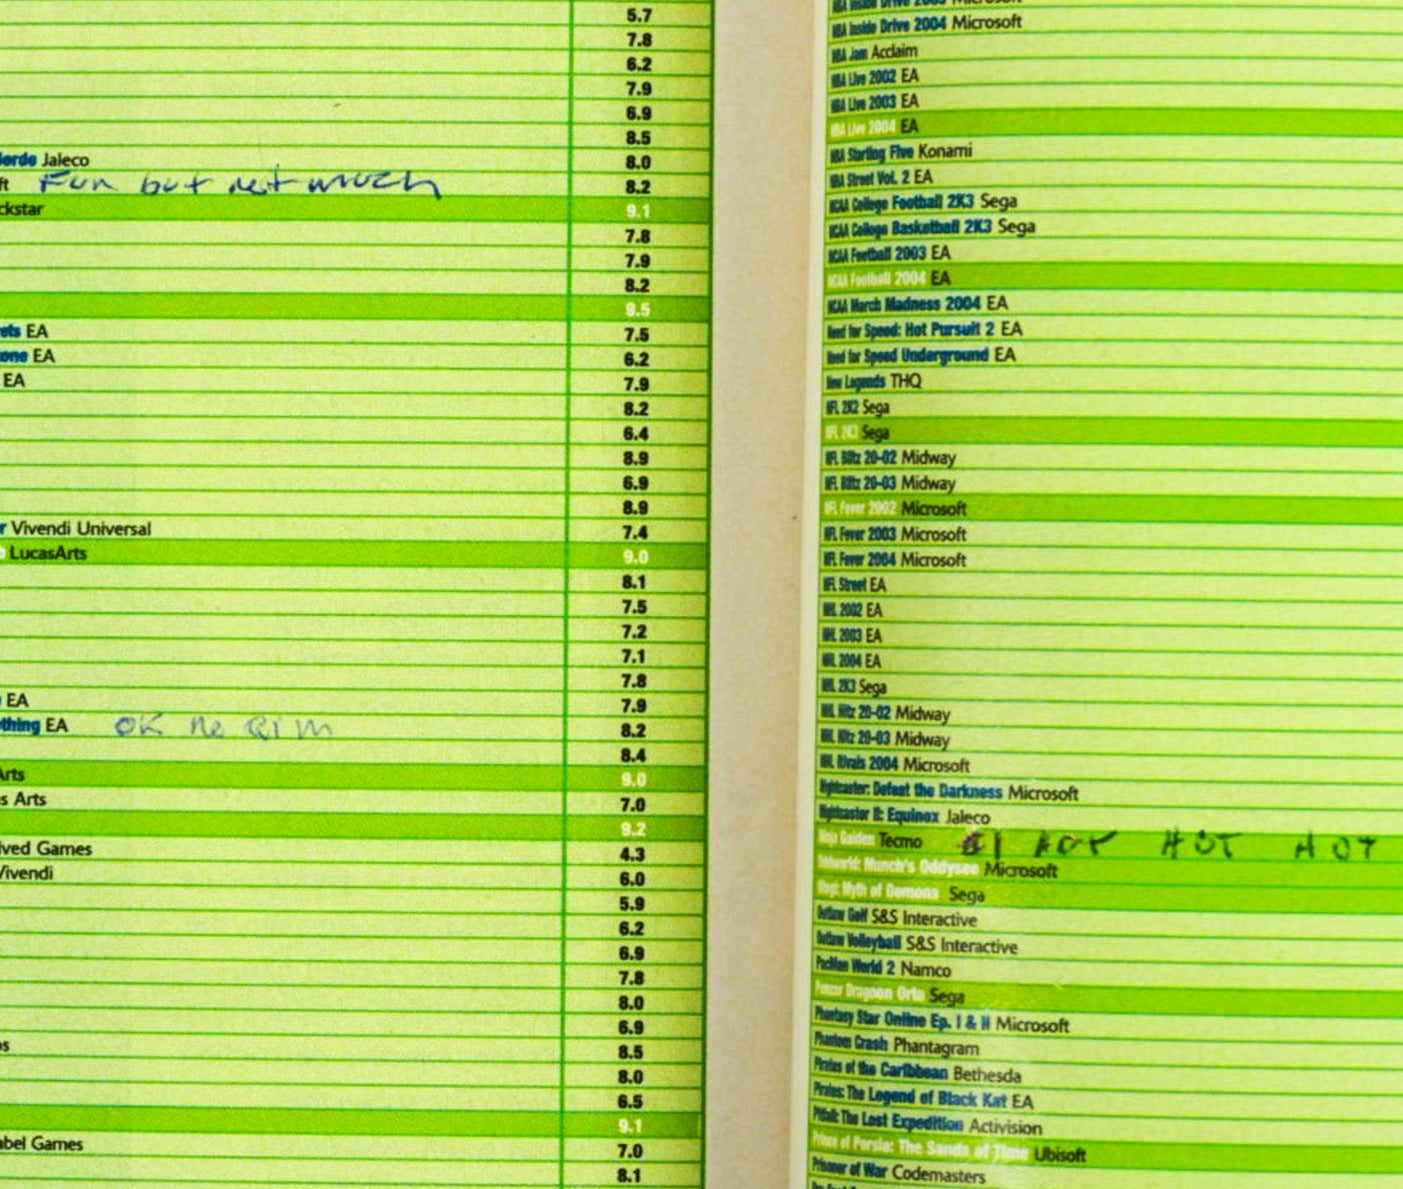 5.7
7.8
6.2
7.9
6.9
8.5
Jaleco 8.0
Fun but not much 8.2
ckstar 9.1
7.8
7.9
8.2
9.5
ets EA 7.5
one EA 6.2
EA 7.9
8.2
6.4
8.9
6.9
8.9
r Vivendi Universal 7.4
LucasArts 9.0
8.1
7.5
7.2
7.1
7.8
EA 7.9
thing EA OK 8.2
8.4
Arts 9.0
s Arts 7.0
9.2
lved Games 4.3
Vivendi 6.0
5.9
6.2
6.9
7.8
8.0
6.9
os 8.5
8.0
6.5
9.1
abel Games 7.0
8.1
NBA Inside Drive 2003 Microsoft
NBA Inside Drive 2004 Microsoft
NBA Jam Acclaim
NBA Live 2002 EA
NBA Live 2003 EA
NBA Live 2004 EA
NBA Starting Five Konami
NBA Street Vol. 2 EA
NCAA College Football 2K3 Sega
NCAA College Basketball 2K3 Sega
NCAA Football 2003 EA
NCAA Football 2004 EA
NCAA March Madness 2004 EA
Need for Speed: Hot Pursuit 2 EA
Need for Speed Underground EA
New Legends THQ
NFL 2K2 Sega
NFL 2K3 Sega
NFL Blitz 20-02 Midway
NFL Blitz 20-03 Midway
NFL Fever 2002 Microsoft
NFL Fever 2003 Microsoft
NFL Fever 2004 Microsoft
NFL Street EA
NHL 2002 EA
NHL 2003 EA
NHL 2004 EA
NHL 2K3 Sega
NHL Hitz 20-02 Midway
NHL Hitz 20-03 Midway
NHL Rivals 2004 Microsoft
Nightcaster: Defeat the Darkness Microsoft
Nightcaster II: Equinox Jaleco
Ninja Gaiden Tecmo #1 HOT HOT HOT
Oddworld: Munch's Oddysee Microsoft
Otogi: Myth of Demons Sega
Outlaw Golf S&S Interactive
Outlaw Volleyball S&S Interactive
PacMan World 2 Namco
Panzer Dragoon Orta Sega
Phantasy Star Online Ep. I & II Microsoft
Phantom Crash Phantagram
Pirates of the Caribbean Bethesda
Pirates: The Legend of Black Kat EA
Pitfall: The Lost Expedition Activision
Prince of Persia: The Sands of Time Ubisoft
Prisoner of War Codemasters